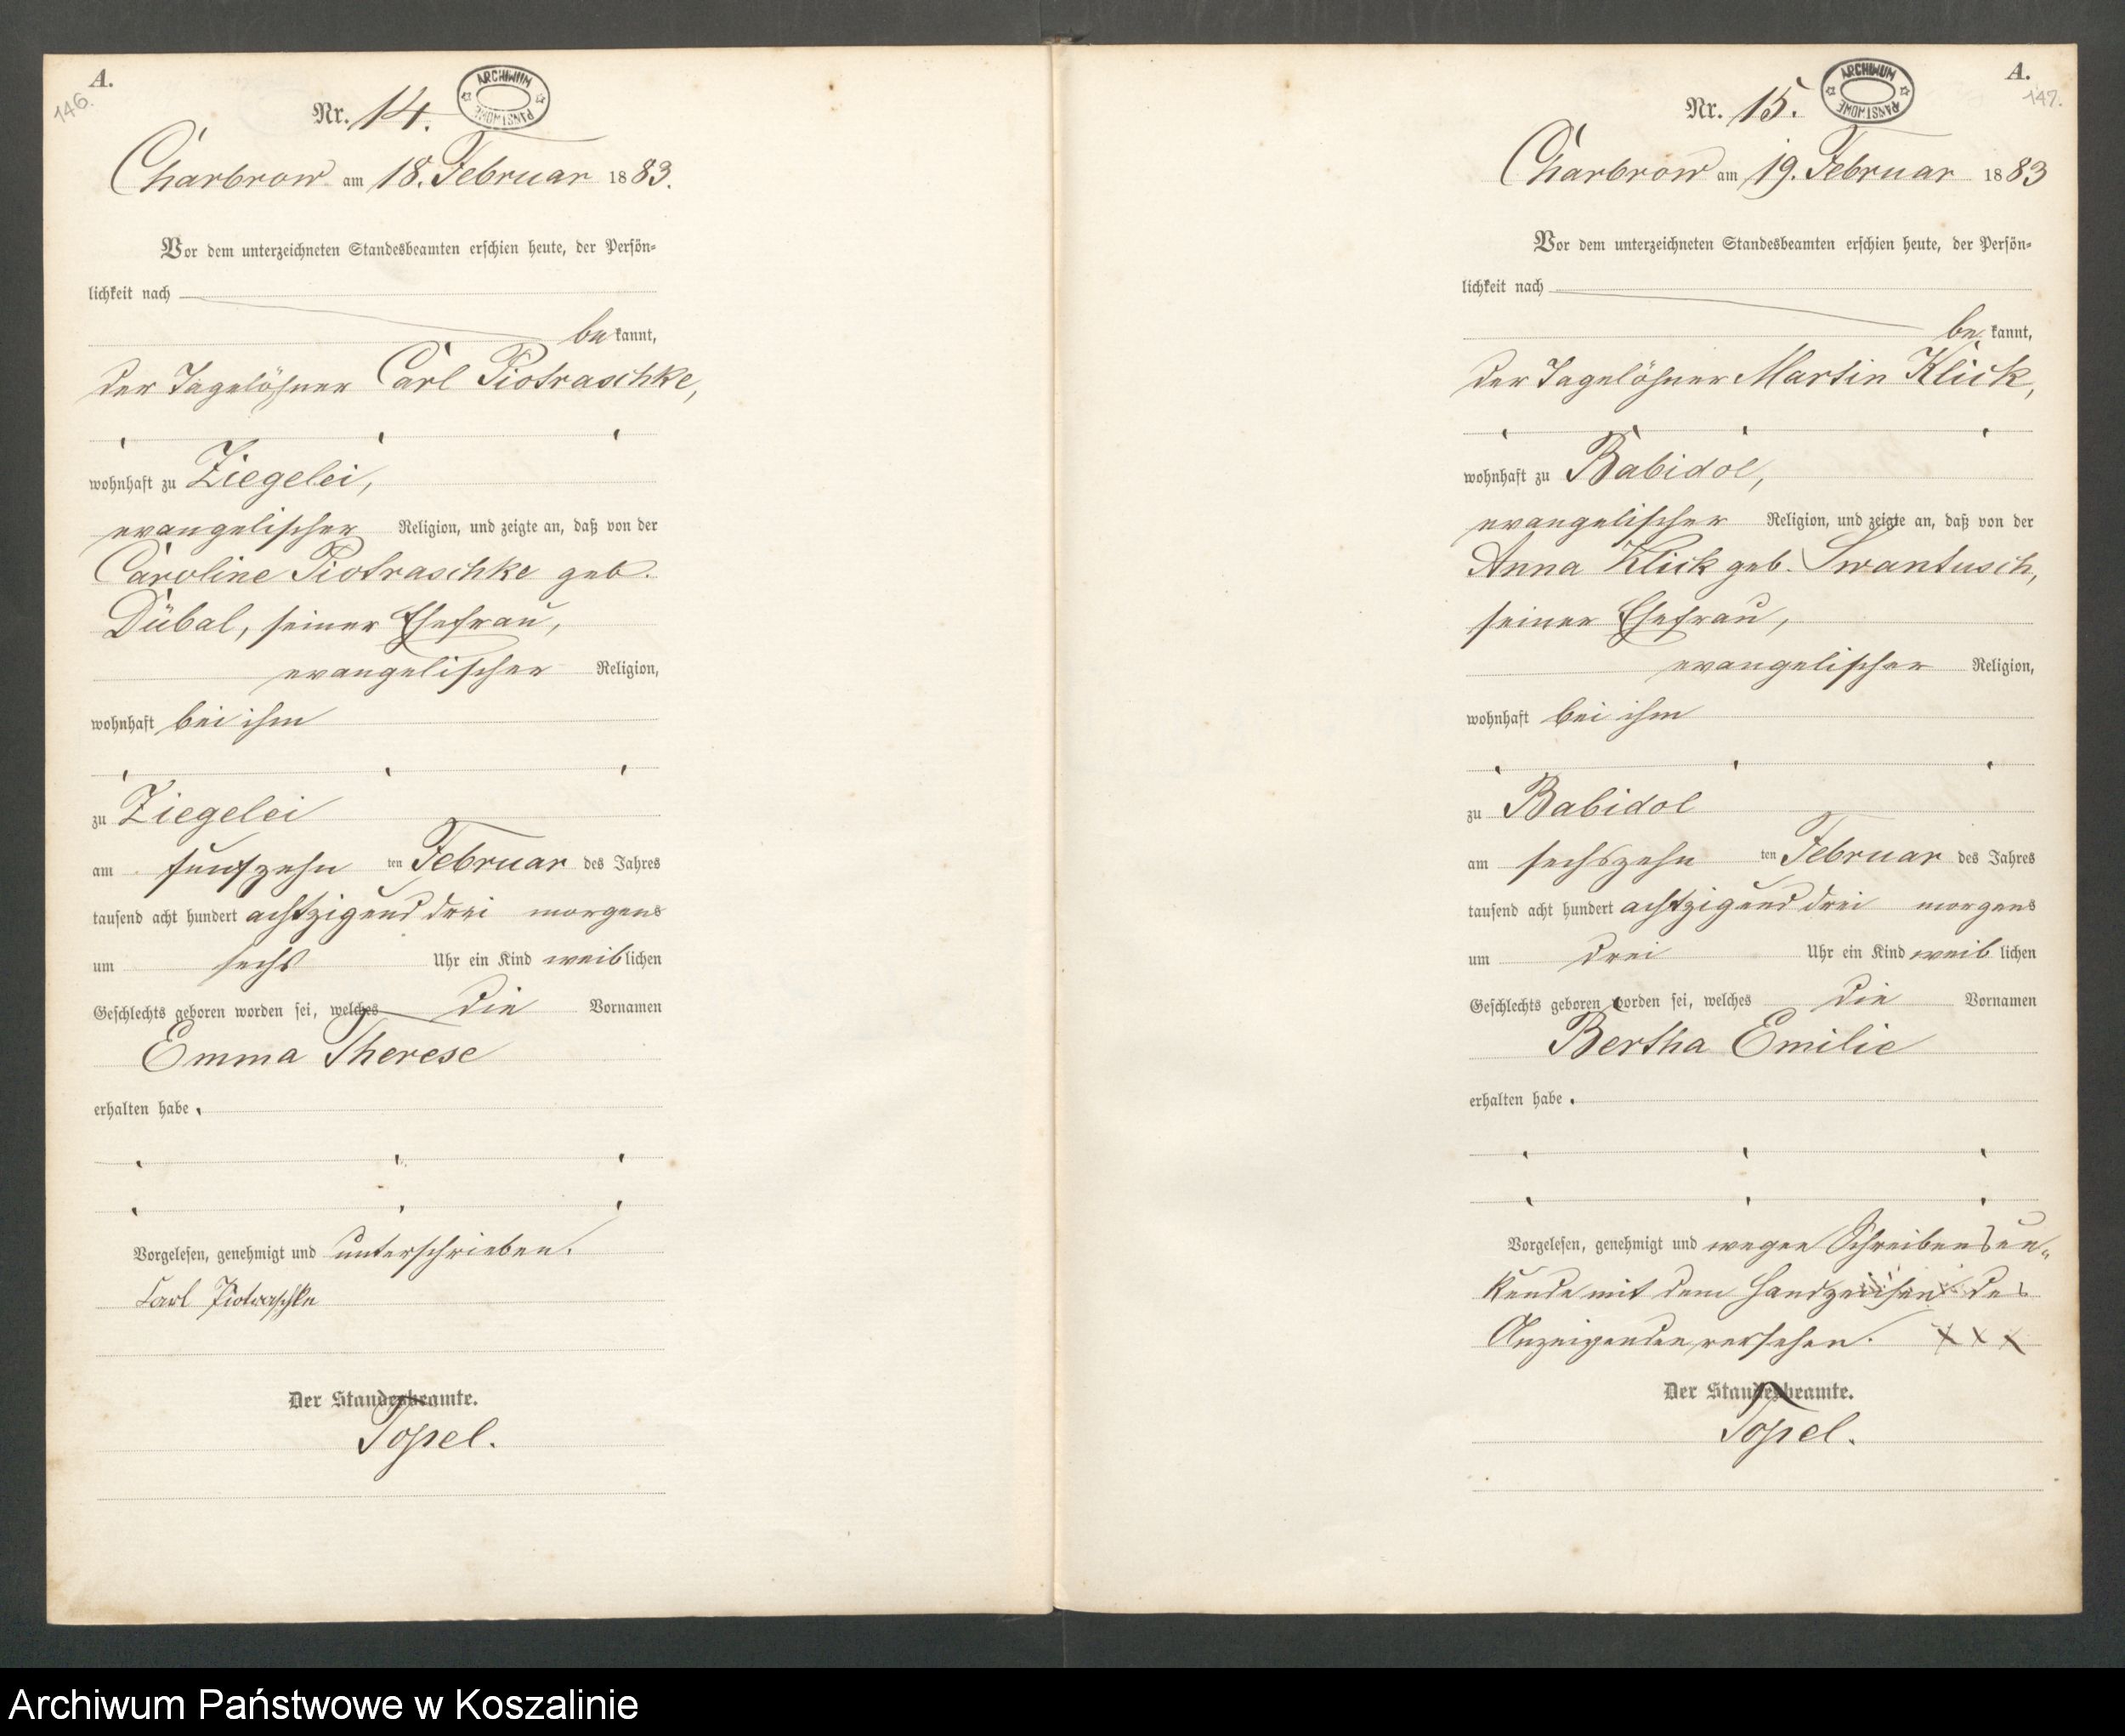 A.
146.
Nr. 14.
ARCHIWUM PAŃSTWOWE
Charbrow am 18. Februar 1883.
Vor dem unterzeichneten Standesbeamten erschien heute, der Persön-
lichkeit nach
be kannt,
der Tagelöhner Carl Piotraschke,
wohnhaft zu Ziegelei,
evangelischer Religion, und zeigte an, daß von der
Caroline Piotraschke geb.
Dübal, seiner Ehefrau,
evangelischer Religion,
wohnhaft bei ihm
zu Ziegelei
am fünfzehn ten Februar des Jahres
tausend acht hundert achtzig und drei morgens
um sechs Uhr ein Kind weiblichen
Geschlechts geboren worden sei, welches die Vornamen
Emma Therese
erhalten habe.
Vorgelesen, genehmigt und unterschrieben.
Carl Piotraschke
Der Standesbeamte.
Topel.
A.
147.
Nr. 15.
ARCHIWUM PAŃSTWOWE
Charbrow am 19. Februar 1883
Vor dem unterzeichneten Standesbeamten erschien heute, der Persön-
lichkeit nach
be kannt,
der Tagelöhner Martin Klick,
wohnhaft zu Babidol,
evangelischer Religion, und zeigte an, daß von der
Anna Klick geb. Swantusch,
seiner Ehefrau,
evangelischer Religion,
wohnhaft bei ihm
zu Babidol
am sechszehn ten Februar des Jahres
tausend acht hundert achtzig und drei morgens
um drei Uhr ein Kind weib lichen
Geschlechts geboren worden sei, welches die Vornamen
Bertha Emilie
erhalten habe.
Vorgelesen, genehmigt und wegen Schreibensun-
kunde mit dem Handzeichen des
Anzeigenden versehen. x x x
Der Standesbeamte.
Topel.
Archiwum Państwowe w Koszalinie